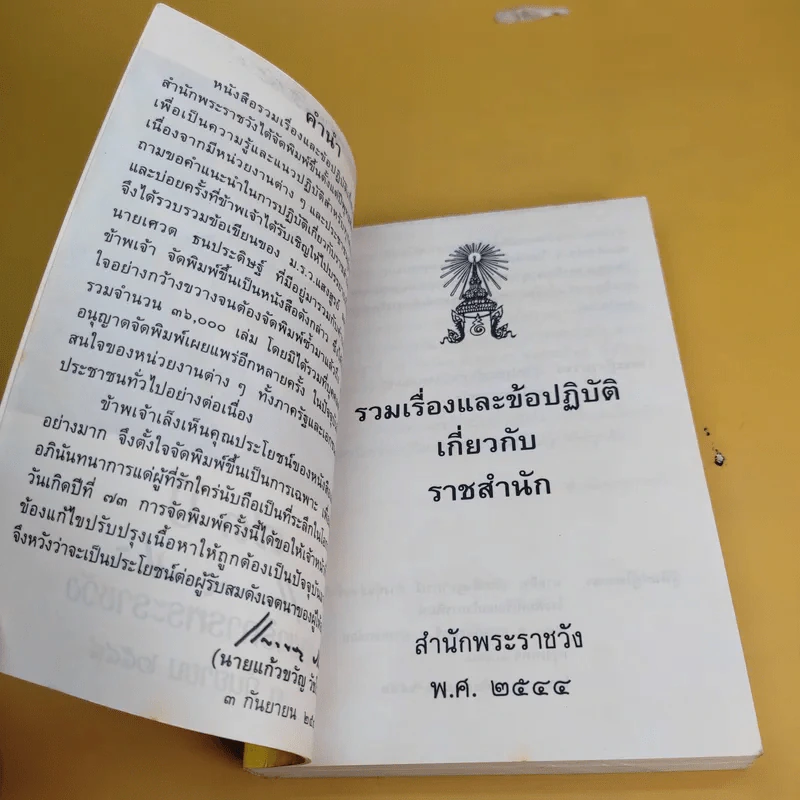 คำนำ
หนังสือรวมเรื่องและข้อปฏิบัติ
สำนักพระราชวังได้จัดพิมพ์ขึ้นตั้งแต่
เพื่อเป็นความรู้และแนวปฏิบัติสำหรับ
เนื่องจากมีหน่วยงานต่าง ๆ และประชา
ถามขอคำแนะนำในการปฏิบัติเกี่ยวกับ
และบ่อยครั้งที่ข้าพเจ้าได้รับเชิญให้ไป
จึงได้รวบรวมข้อเขียนของ ม.ร.ว.แสงสูรย์
นายเศวต ธนประดิษฐ์ ที่มีอยู่มารวมกับ
ข้าพเจ้า จัดพิมพ์ขึ้นเป็นหนังสือดังกล่าว
ใจอย่างกว้างขวางจนต้องจัดพิมพ์ซ้ำมาแล้ว
รวมจำนวน ๓๖,๐๐๐ เล่ม โดยมิได้รวมที่
อนุญาตจัดพิมพ์เผยแพร่อีกหลายครั้ง ในปัจจุบัน
สนใจของหน่วยงานต่าง ๆ ทั้งภาครัฐและเอกชน
ประชาชนทั่วไปอย่างต่อเนื่อง
ข้าพเจ้าเล็งเห็นคุณประโยชน์ของหนังสือ
อย่างมาก จึงตั้งใจจัดพิมพ์ขึ้นเป็นการเฉพาะ
อภินันทนาการแด่ผู้ที่รักใคร่นับถือเป็นที่ระลึกใน
วันเกิดปีที่ ๗๓ การจัดพิมพ์ครั้งนี้ได้ขอให้เจ้าหน้า
ข้องแก้ไขปรับปรุงเนื้อหาให้ถูกต้องเป็นปัจจุบัน
จึงหวังว่าจะเป็นประโยชน์ต่อผู้รับสมดังเจตนาของผู้ให้
(นายแก้วขวัญ
๓ กันยายน
รวมเรื่องและข้อปฏิบัติ
เกี่ยวกับ
ราชสำนัก
สำนักพระราชวัง
พ.ศ. ๒๕๔๔